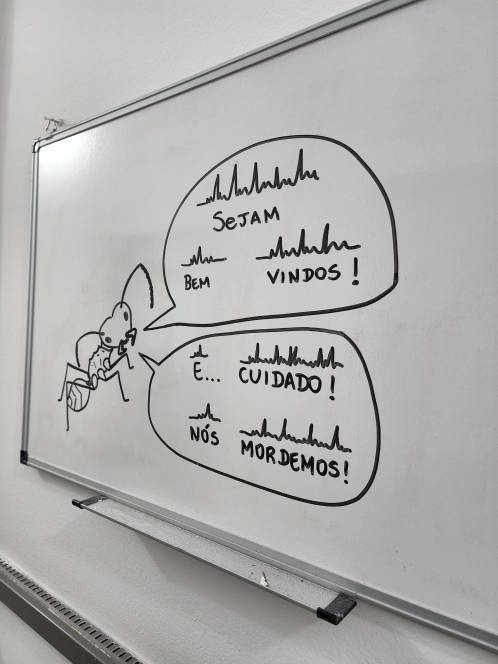 SEJAM
BEM VINDOS!
E... CUIDADO!
NÓS MORDEMOS!